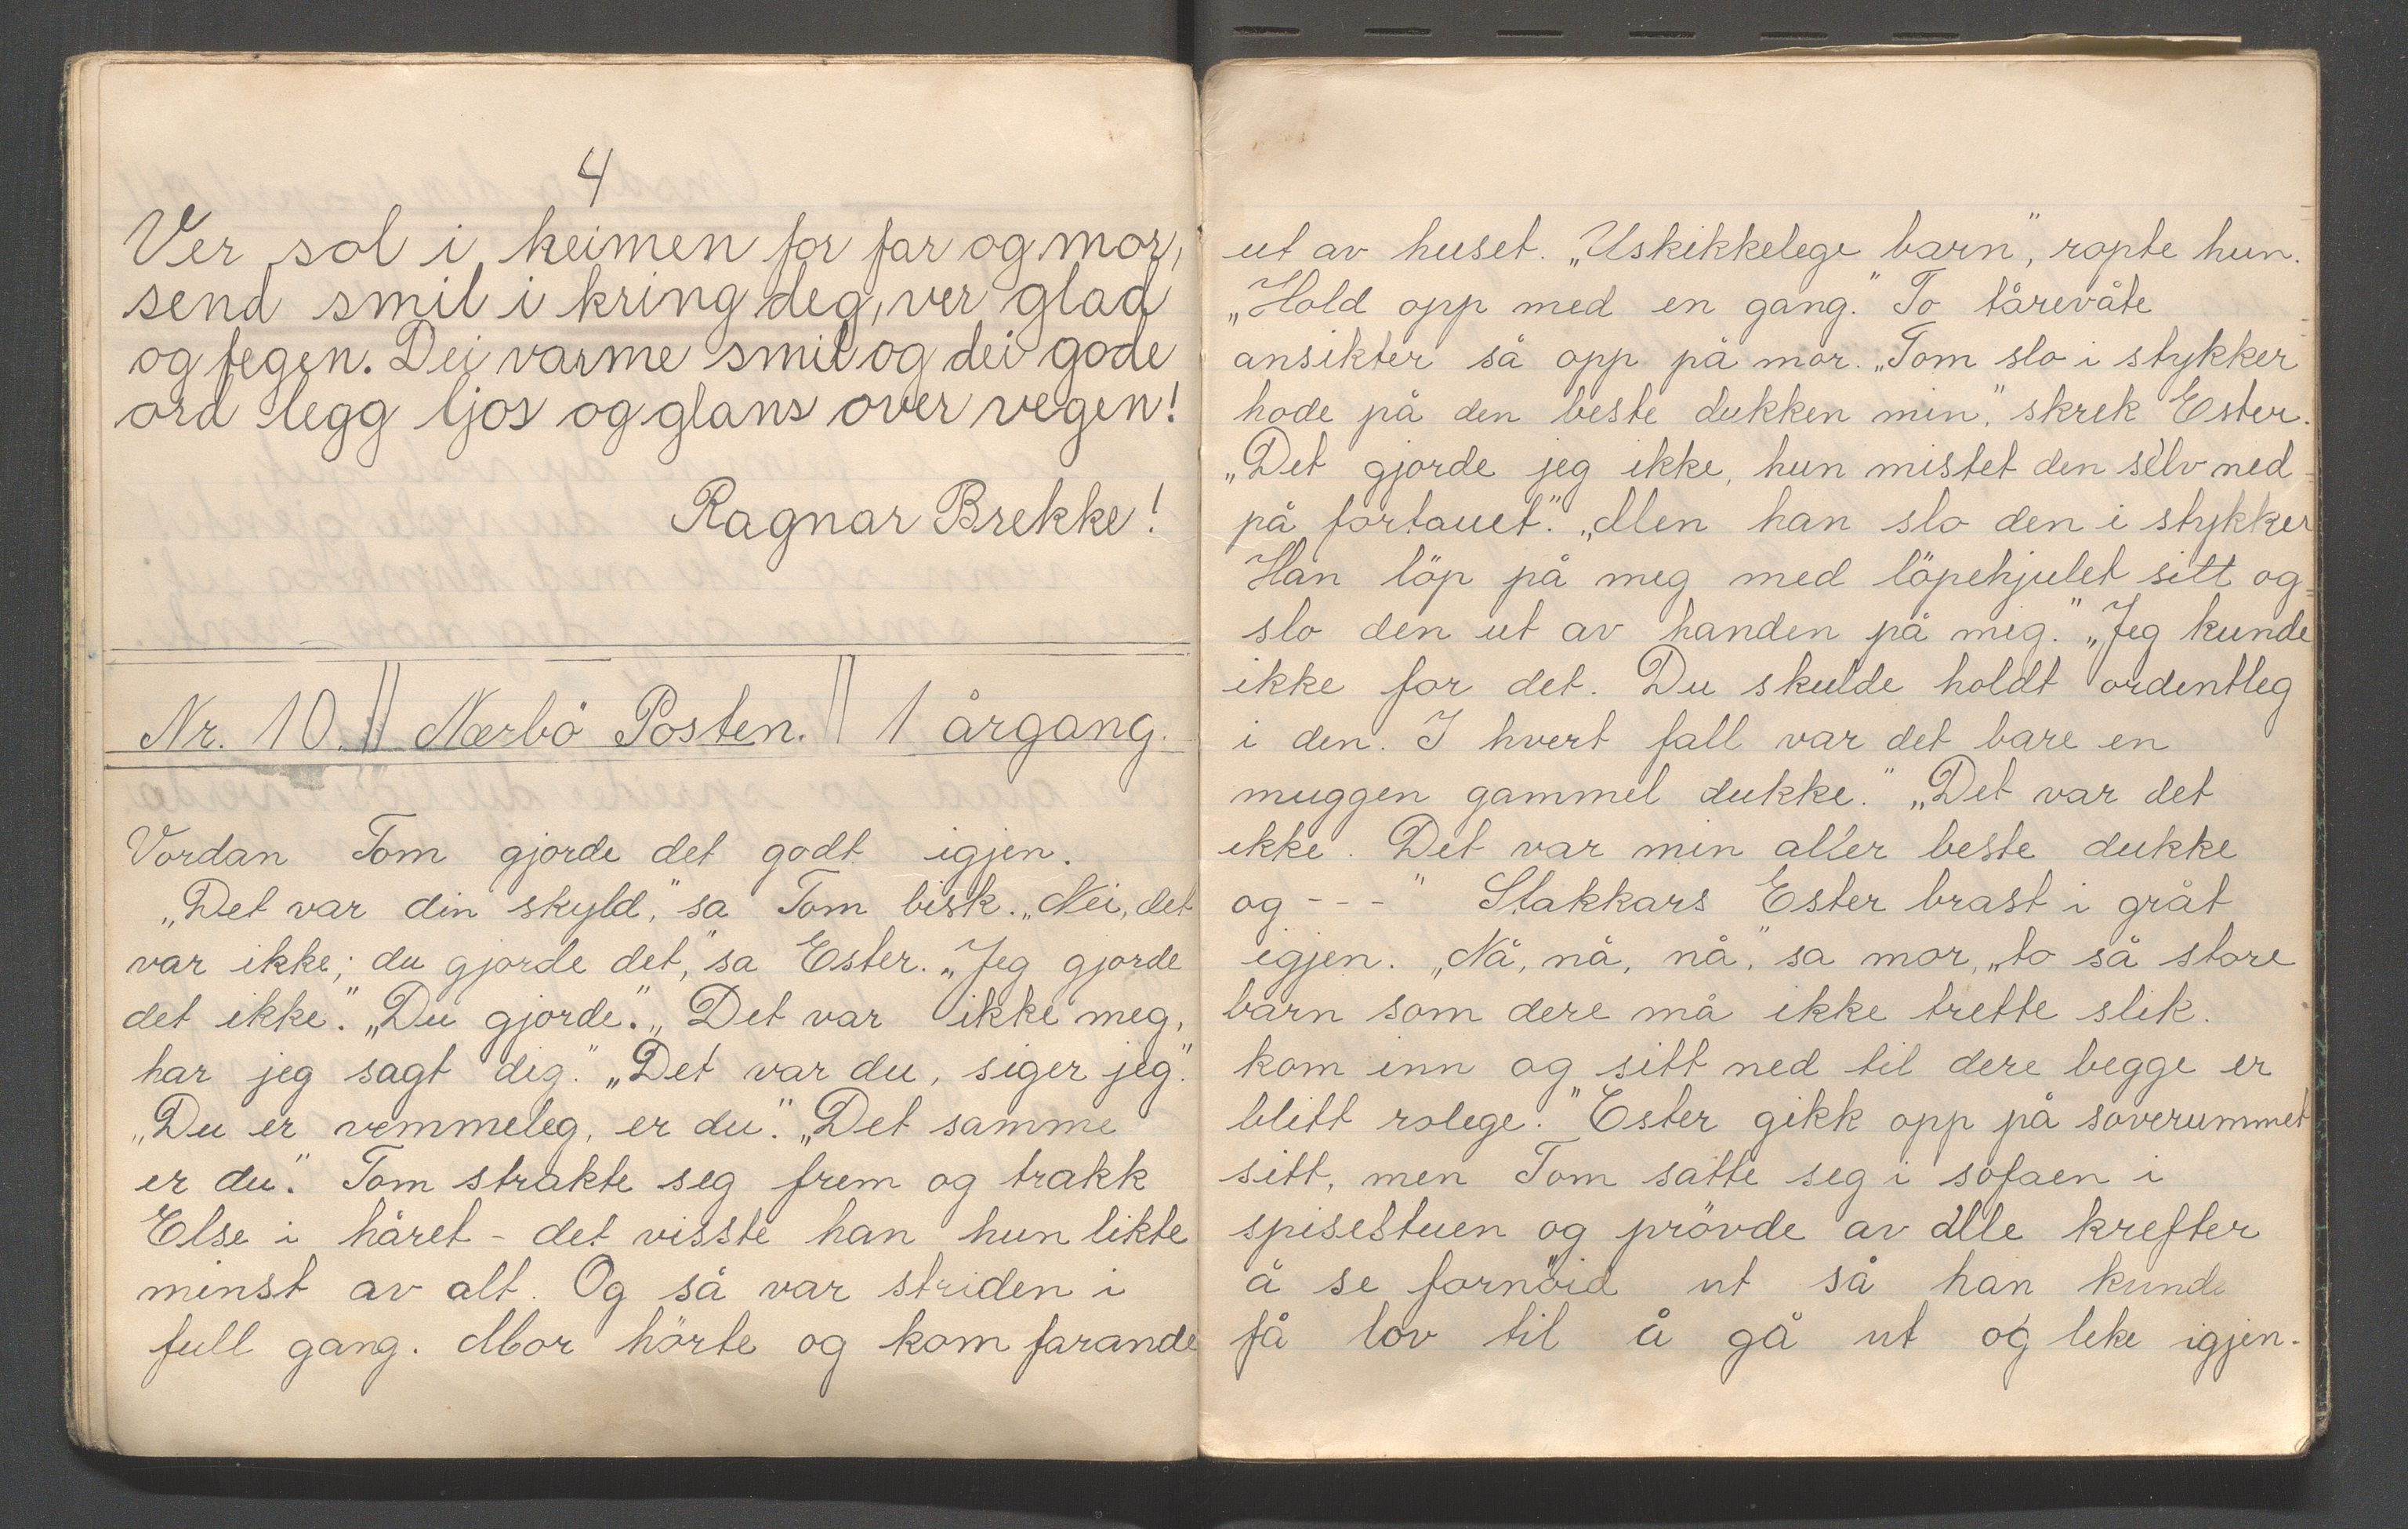 4
Ver sol i heimen for far og mor,
send smil i kring deg, ver glad
og fegen. Dei varme smil og dei gode
ord legg ljos og glans over vegen!
Ragnar Brekke!
Nr. 10. || Nærbö Posten. || 1 årgang.
Vordan Tom gjorde det godt igjen.
„Det var din skyld," sa Tom bisk. „Nei, det
var ikke; du gjorde det," sa Ester. „Jeg gjorde
det ikke." „Du gjorde." „Det var ikke meg,
har jeg sagt dig." „Det var du, siger jeg."
„Du er vemmeleg, er du." „Det samme
er du." Tom strakte seg frem og trakk
Else i håret - det visste han hun likte
minst av alt. Og så var striden i
full gang. Mor hörte og kom farande
ut av huset. „Uskikkelege barn", ropte hun.
„Hold opp med en gang." To tårevåte
ansikter så opp på mor. „Tom slo i stykker
hode på den beste dukken min," skrek Ester.
„Det gjorde jeg ikke, hun mistet den selv ned
på fortauet." „Men han slo den i stykker
Han löp på meg med löpehjulet sitt og
slo den ut av handen på mig." „Jeg kunde
ikke for det. Du skulde holdt ordentleg
i den. I hvert fall var det bare en
muggen gammel dukke." „Det var det
ikke. Det var min aller beste dukke
og - - - " Stakkars Ester brast i gråt
igjen. „Nå, nå, nå," sa mor, „to så store
barn som dere må ikke trette slik.
kom inn og sitt ned til dere begge er
blitt rolege." Ester gikk opp på soverummet
sitt, men Tom satte seg i sofaen i
spisestuen og prövde av alle krefter
å se fornöid ut så han kunde
få lov til å gå ut og leke igjen.